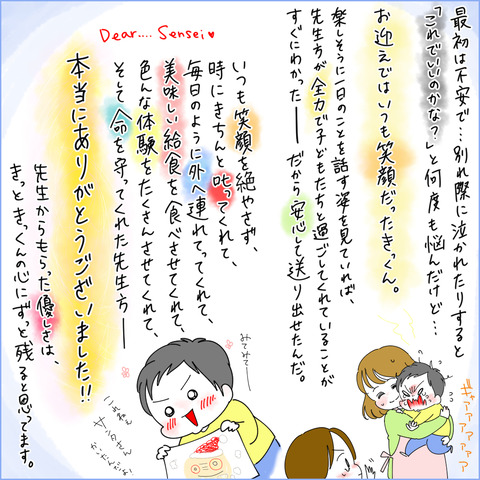 最初は不安で…別れ際に泣かれたりすると
「これでいいのかな？」と何度も悩んだけど…
お迎えではいつも笑顔だったきっくん。
楽しそうに一日のことを話す姿を見ていれば、
先生方が全力で子どもたちと過ごしてくれていることが
すぐにわかった──だから安心して送り出せたんだ。
Dear.... Sensei♥
いつも笑顔を絶やさず、
時にきちんと叱ってくれて、
毎日のように外へ連れてってくれて、
美味しい給食を食べさせてくれて、
色んな体験をたくさんさせてくれて、
そして命を守ってくれた先生方──
本当にありがとうございました!!
先生からもらった優しさは、
きっときっくんの心にずっと残ると思ってます。
みてみてー
これねぇ
サンタさん
かいたんだよ！
ギャアァアアァァア